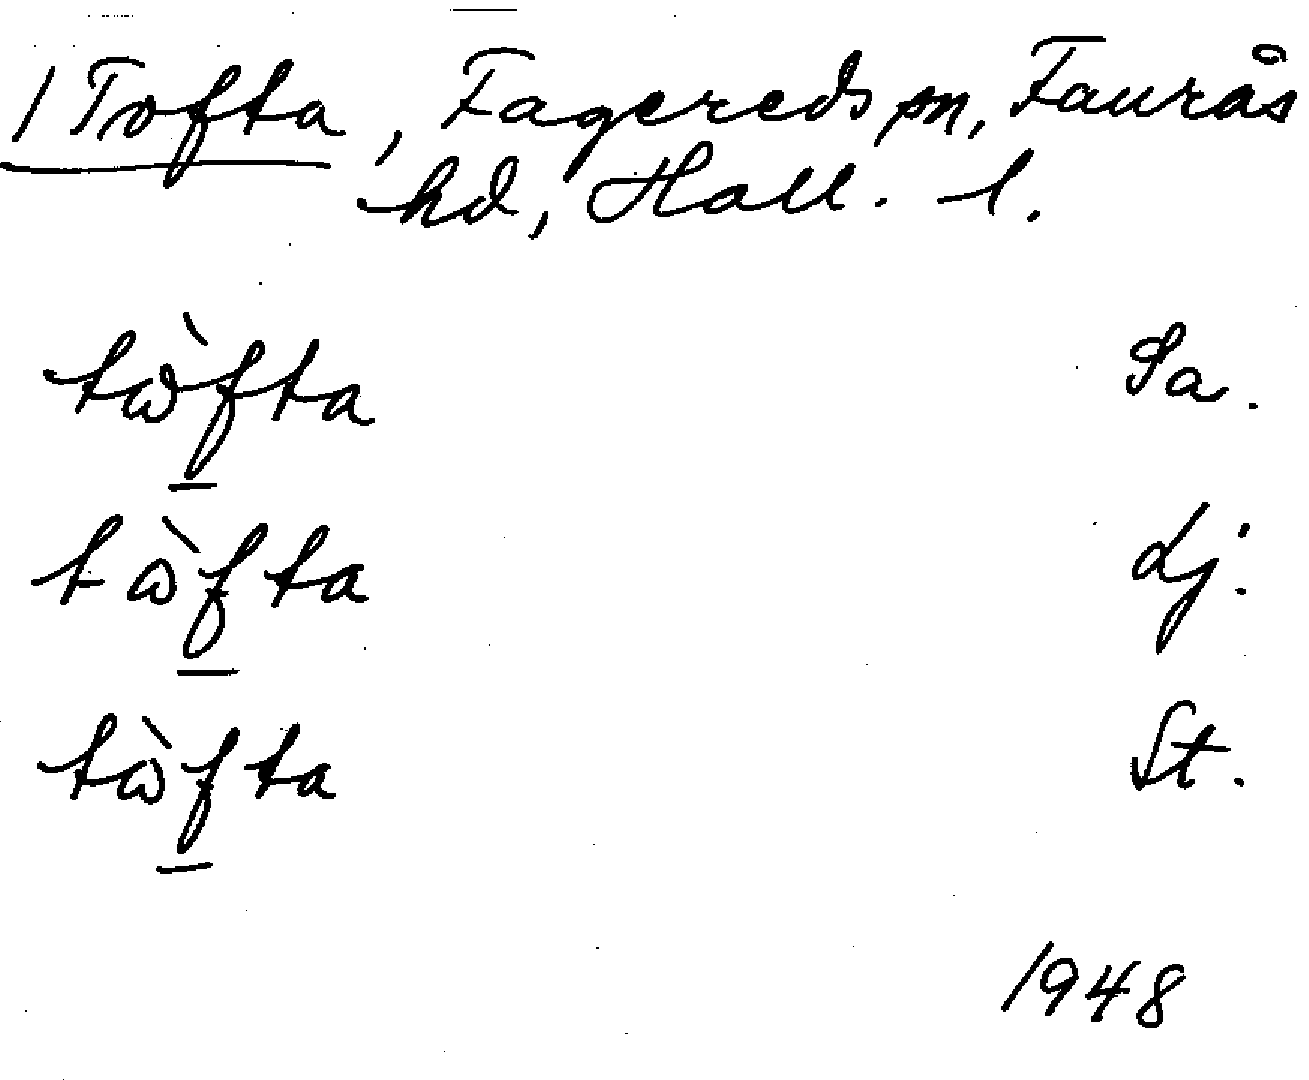 1 Tofta, Fagereds sn, Faurås
hd, Hall. l.
tὼf̲ta Sa.
tὼf̲ta Lj.
tὼf̲ta St.
1948